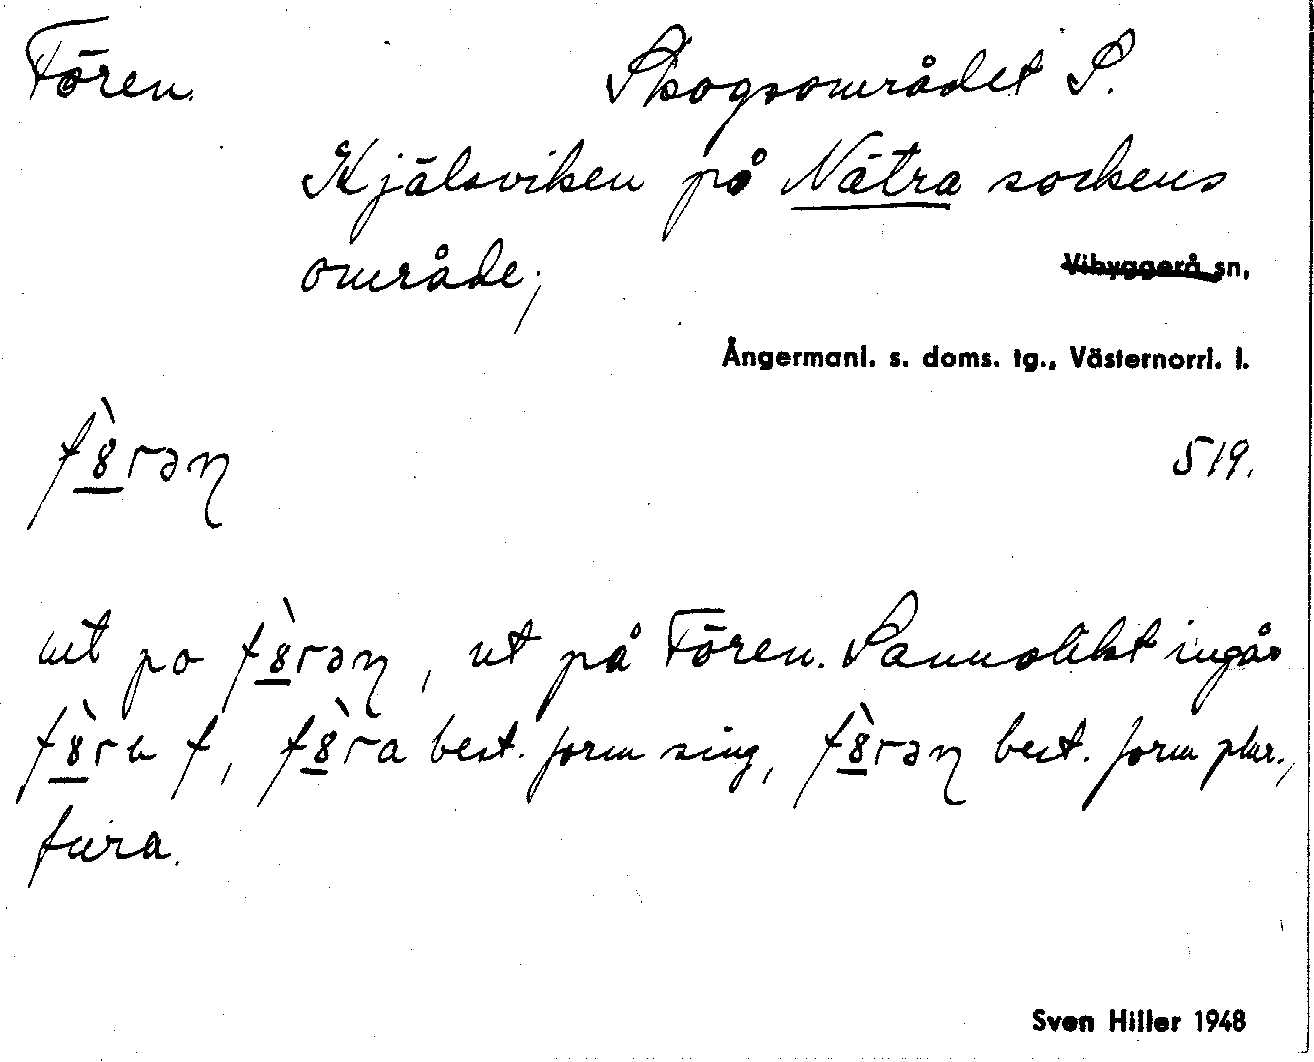 Fören. Skogsområdet S.
Kjälsviken på Nätra sockens
område;
Vibyggerå sn,
Ångermanl. s. doms. tg., Västernorrl. l.
f8̀rəɲ
519.
ut po f8̀rəɲ, ut på Fören. Sannolikt ingår
f8̀ru f, f8̀ra best. form sing, f8̀rəɲ best. form plur.,
fura.
Sven Hiller 1948